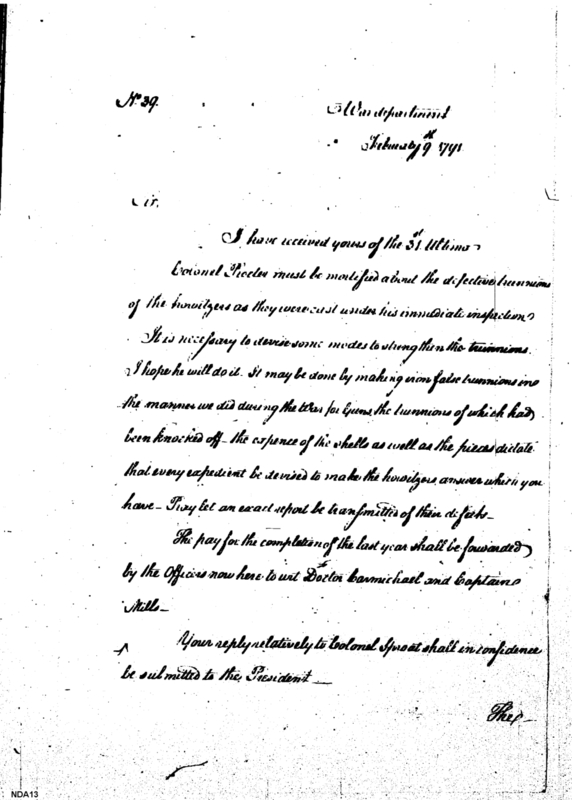 No. 39.
War department
February 9th 179
Sir.
I have received yours of the 31st Ultimo
Colonel Procter must be mortified about the defective trunnions
of the howitzers as they were cast under his immediate inspection
It is necessary to devise some modes to strengthen the trunnions.
I hope he will do it. It may be done by making iron false trunnions in
the manner we did during the War for Guns, the trunnions of which had
been knocked off – the expence of the shells as well as the pieces dictate
that every expedient be devised to make the howitzers answer which you
have – Pray let an exact report be transmitted of their defects –
The pay for the completion of the last year shall be forwarded
by the Officers now here to wit Doctor Carmichael and Captain
Mills –
Your reply relatively to Colonel Sproat shall in confidence
be submitted to the President –
The
NDA13